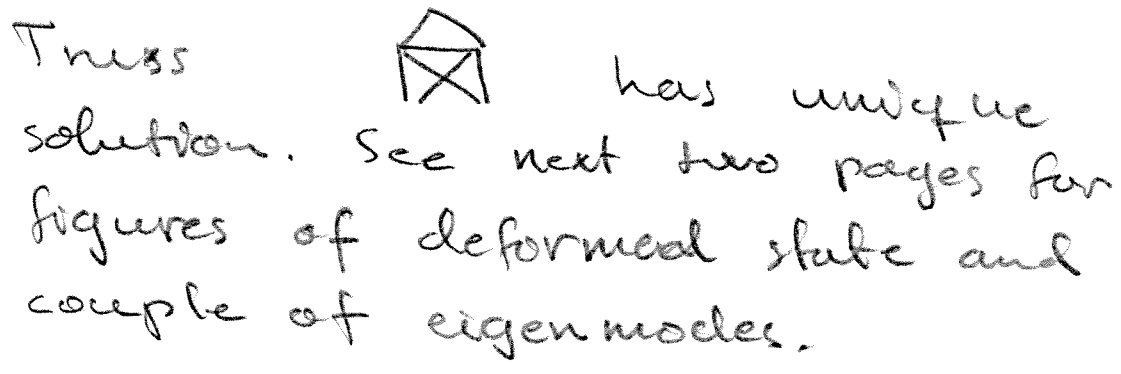 Truss has unique
solution. See next two pages for
figures of deformed state and
couple of eigenmodes.